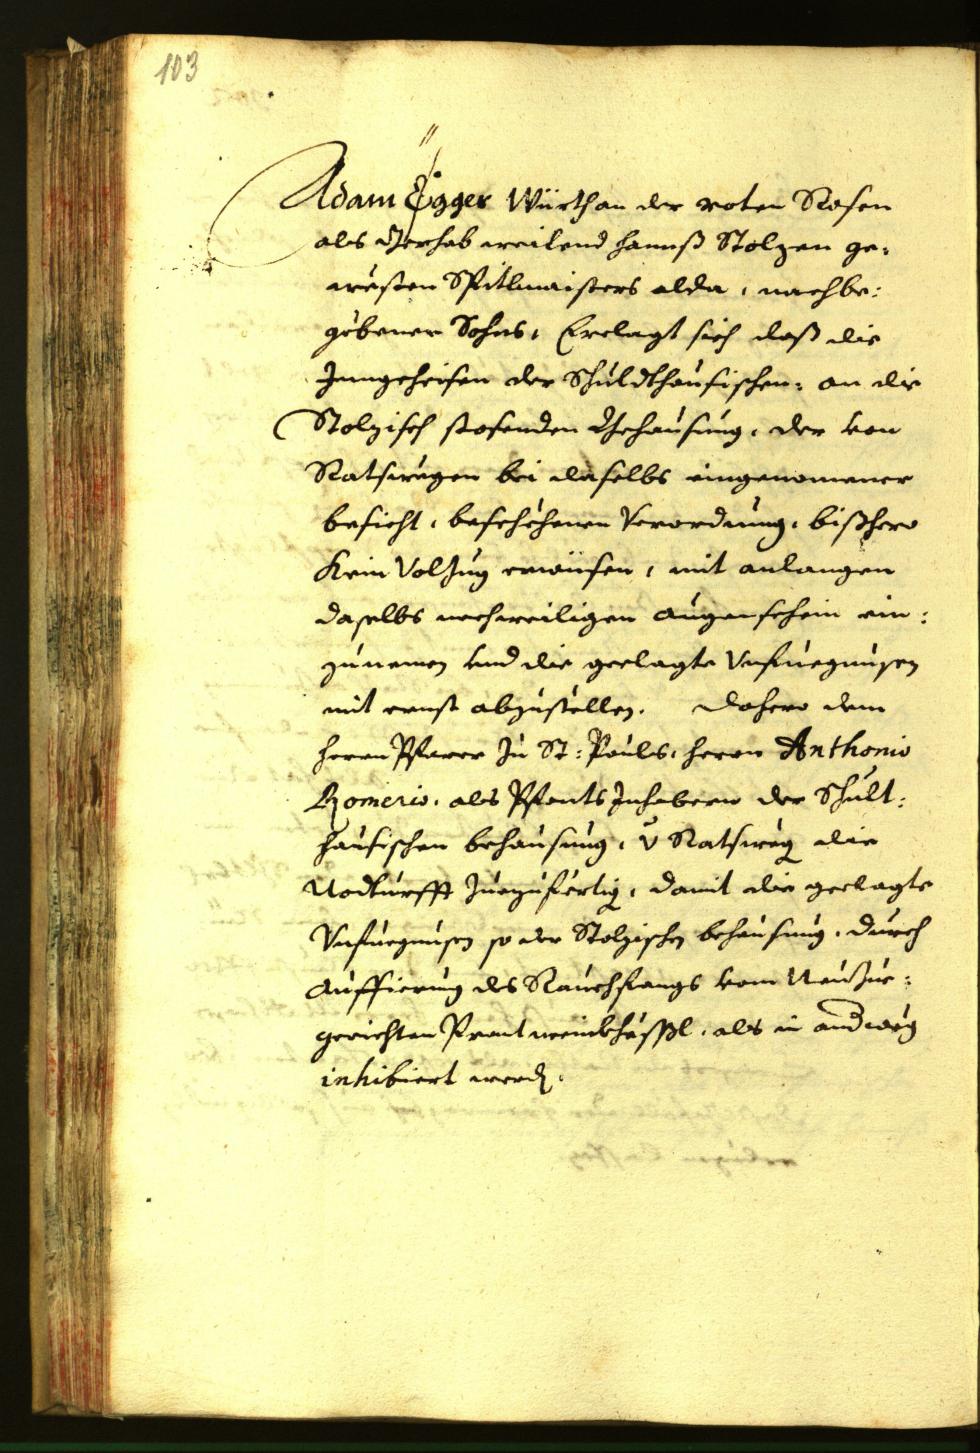 103
Adam Egger Würth an der roten Rosen
als Gerhab weilend Hannß Stolzen ge-
westen Spitlmaisters alda, nachbe-
gebener Sohns, Erclagt sich daß die
Inngeheisen der Schuldthausischen- an die
Stolzisch stosenden Behausung, der von
Ratswegen bei daselbs eingenomener
besicht, beschehenen Verordnung, bißhero
Kein Volzug erweisen, mit anlangen
daselbs nochweiligen augenschein ein-
zunemen und die geclagte Unfuegnusen
mit ernst abzustellen. Dahero dem
herrn Pfarrer zu St: Pauls, herrn Anthonio
Romerio, als Pfants Inhabern der Schult-
hausischen behausung, v Ratsweg die
Nodturfft zuezufertig, damit die geclagte
Unfuegnusen so der Stolzischen behausung, durch
Auffierung des Rauchfangs vom Neu zue-
gerichten Prantweinbheüßl, als in andweg
inhibiert werd.